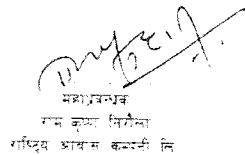 महाप्रबन्धक
राम कृष्ण निरौला
राष्ट्रिय आवास कम्पनी लि